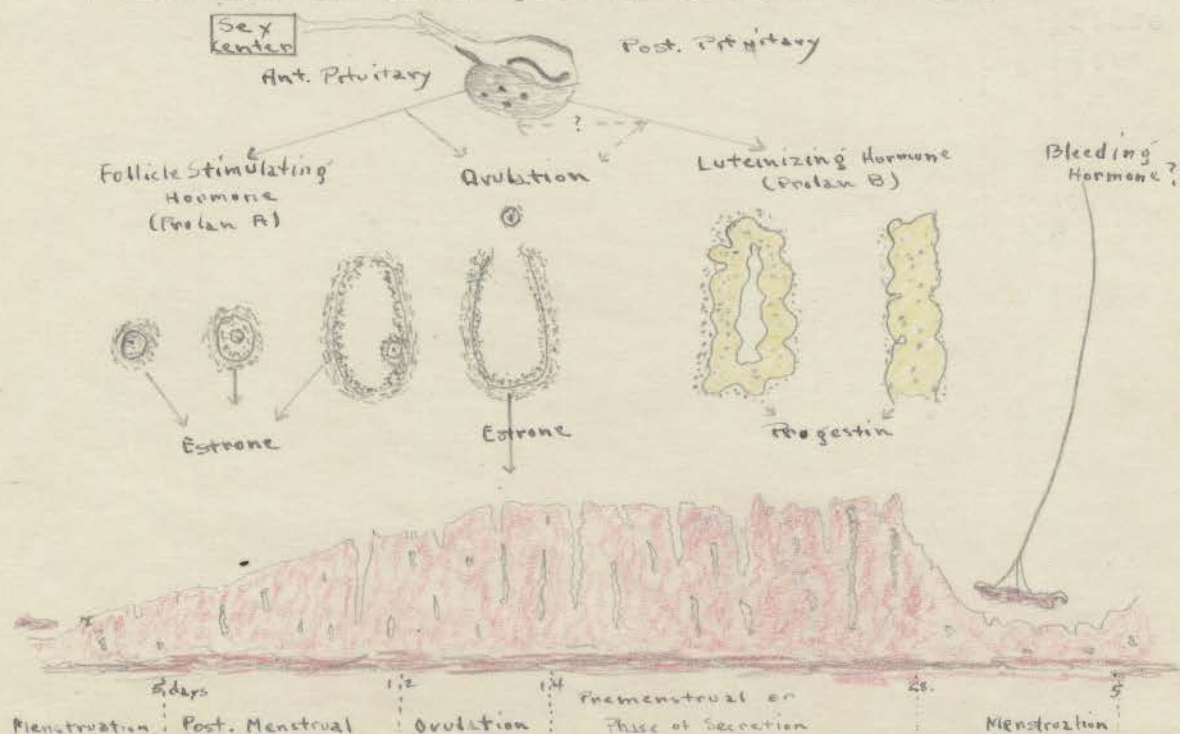 Sex
Center
Post. Pituitary
Ant. Pituitary
?
Follicle Stimulating
Hormone
(Prolan A)
Ovulation
Luteinizing Hormone
(Prolan B)
Bleeding
Hormone?
Estrone
Estrone
Progestin
5 days
12
14
28
5
Menstruation
Post. Menstrual
Ovulation
Premenstrual or
Phase of Secretion
Menstruation